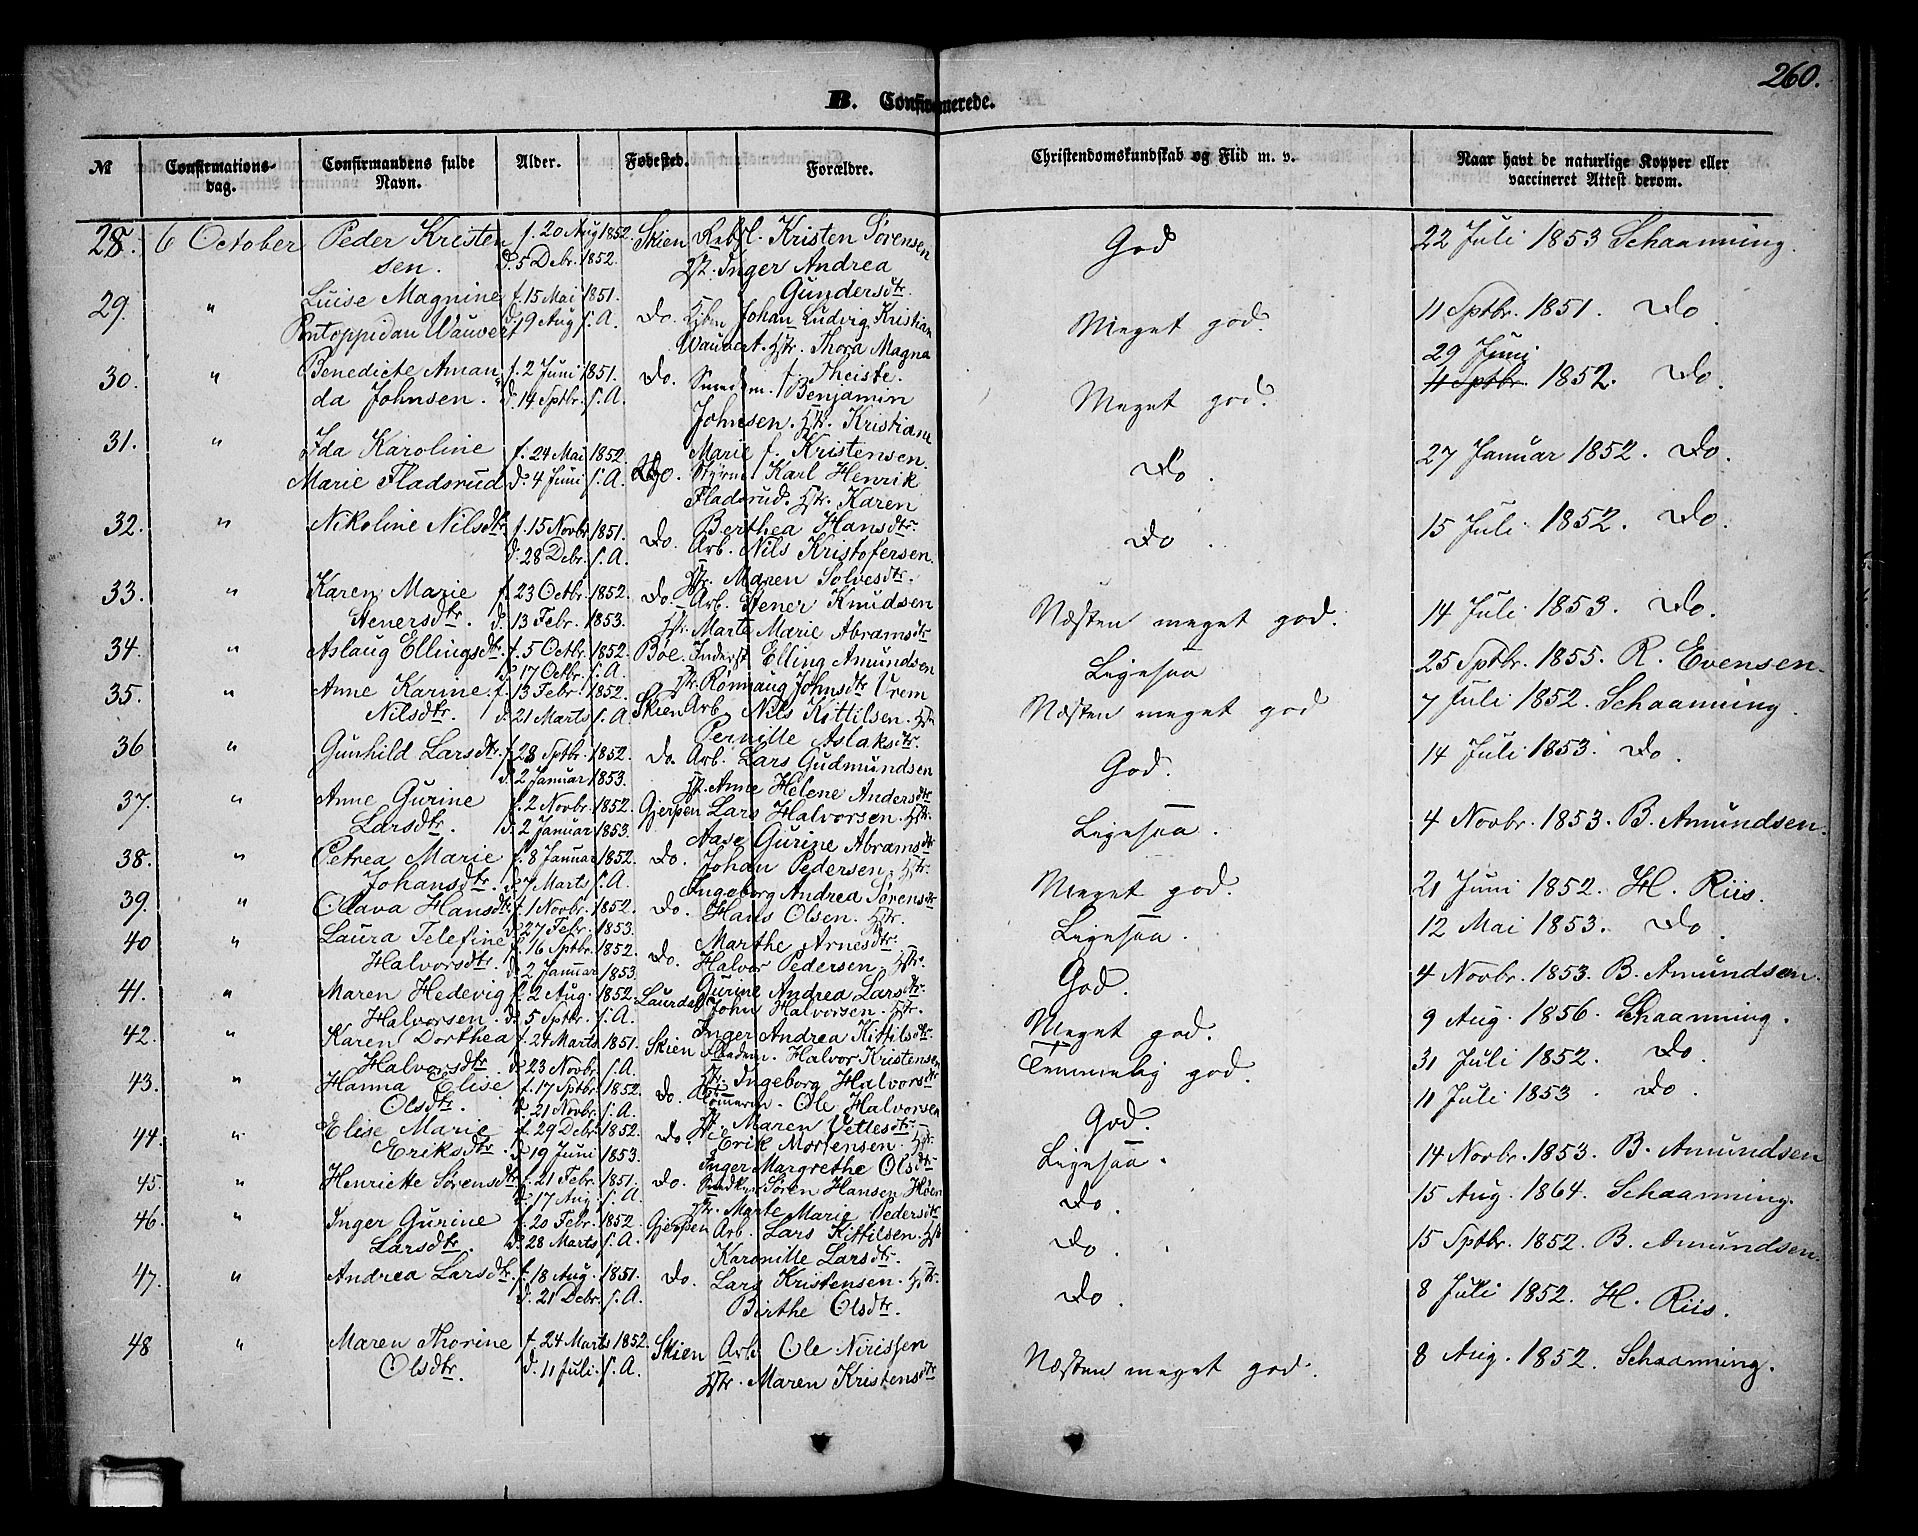 260.
B. Confirmerede.
№ Confirmations-dag. Confirmandens fulde Navn. Alder. Fødested. Forældre. Christendomskundskab og Flid m. v. Naar havt de naturlige Kopper eller vaccineret Attest derom.
28. 6 October Peder Kristen f. 20 Aug 1852. Skien Kristen Sørensen God 22 Juli 1853 Schaanning.
sen. d. 5 Debr. 1852. Inger Andrea
Gundersdtr.
29. " Luise Magnine f. 15 Mai 1851. Do. Johan Ludvig Kristian Meget god. 11 Sptbr. 1851. Do.
Pontoppidan Wauvert d. 19 Aug s. A. Wauvert. Hstr. Thora Magna
Theiste.
30. " Benedicte Aman f. 2 Juni 1851. Do. Benjamin Meget god. 29 Juni
da Johnsen. d. 14 Sptbr. s. A. Johnsen. Hstr. Kristiane 11 Sptbr. 1852. Do.
Marie f. Kristensen.
31. " Ida Karoline f. 24 Mai 1852. Do. Karl Henrik Do. 27 Januar 1852. Do.
Marie Fladsrud d. 4 Juni s. A. Fladsrud. Hstr. Karen
Berthea Hansdtr.
32. " Nikoline Nilsdtr. f. 15 Novbr. 1851. Do. Arb. Nils Kristofersen. Do. 15 Juli 1852. Do.
d. 28 Debr. s. A. Hstr. Maren Solvesdtr.
33. " Karen Marie f. 23 Octbr. 1852. Do. Arb. Stener Knudsen Næsten meget god. 14 Juli 1853. Do.
Stenersdtr. d. 13 Febr. 1853. Hstr. Marte Marie Abramsdtr
34. " Aslaug Ellingsdtr. f. 5 Octbr. 1852. Bøe. Inderst Elling Amundsen Ligesaa 25 Sptbr. 1855. R. Evensen.
d. 17 Octbr. s. A. Hstr. Rønnaug Johnsdtr Urem
35. " Anne Karine f. 13 Febr. 1852. Skien Arb. Nils Kittilsen. Hstr Næsten meget god 7 Juli 1852. Schaanning.
Nilsdtr. d. 21 Marts s. A. Pernille Aslaksdtr.
36 " Gunhild Larsdtr. f. 28 Sptbr. 1852. Do. Arb. Lars Gudmundsen God. 14 Juli 1853. Do.
d. 2 Januar 1853. Anne Helene Andersdtr
37. " Anne Gurine f. 2 Novbr. 1852. Gjerpen Lars Halvorsen. Hstr. Ligesaa. 4 Novbr. 1853. B. Amundsen.
Larsdtr. d. 2 Januar 1853. Aase Gurine Abramsdtr
38. " Petrea Marie f. 8 Januar 1852. Do. Johan Pedersen. Hstr. Meget god. 21 Juni 1852. H. Riis.
Johansdtr. d. 7 Marts s. A. Ingeborg Andrea Sørensdtr
39. " Olava Hansdtr f. 1 Novbr. 1852. Do. Hans Olsen. Hstr. Ligesaa. 12 Mai 1853. Do.
d. 27 Febr. 1853. Marthe Arnesdtr.
40 " Laura Telefine f. 16 Sptbr. 1852. Do. Halvor Pedersen. Hstr. God. 4 Novbr. 1853. B. Amundsen.
Halvorsdtr. d. 2 Januar 1853. Gurine Andrea Larsdtr.
41. " Maren Hedevig f. 2 Aug. 1852. Laurdal John Halvorsen. Hstr. Meget god. 9 Aug. 1856. Schaanning.
Halvorsen. d. 5 Sptbr. s. A. Inger Andrea Kittilsdtr.
42. " Karen Dorthea f. 24 Marts 1851. Skien Halvor Kristensen Temmelig god. 31 Juli 1852. Do.
Halvorsdtr. d. 23 Novbr. s. A. Hstr. Ingeborg Halvorsdtr
43. " Hanna Elise f. 17 Sptbr. 1852. Do. Tømmerm. Ole Halvorsen God. 11 Juli 1853. Do.
Olsdtr. d. 21 Novbr. s. A. Maren Vettesdtr.
44. " Elise Marie f. 29 Debr. 1852. Do. Erik Mortensen. Hstr. Ligesaa. 14 Novbr. 1853. B. Amundsen
Eriksdtr. d. 19 Juni 1853. Inger Margrethe Olsdtr
45. " Henriette Sørensdtr f. 21 Febr. 1851. Do. Søren Hansen Høen Do. 15 Aug. 1864. Schaanning.
d. 17 Aug. s. A. Hstr. Marte Marie Pedersdtr
46. " Inger Gurine f. 20 Febr. 1852. Gjerpen Arb. Lars Kittilsen. Hstr Do. 15 Sptbr. 1852. B. Amundsen.
Larsdtr. d. 28 Marts s. A. Karonille Larsdtr.
47. " Andrea Larsdtr. f. 18 Aug. 1851. Do. Lars Kristensen. Hstr. Do. 8 Juli 1852. H. Riis.
d. 21 Debr. s. A. Birthe Olsdtr.
48 " Maren Thorine f. 24 Marts 1852. Skien Arb. Ole Nirissen Næsten meget god. 8 Aug. 1852. Schaanning.
Olsdtr. d. 11 Juli. s. A. Hstr. Maren Kristensdtr